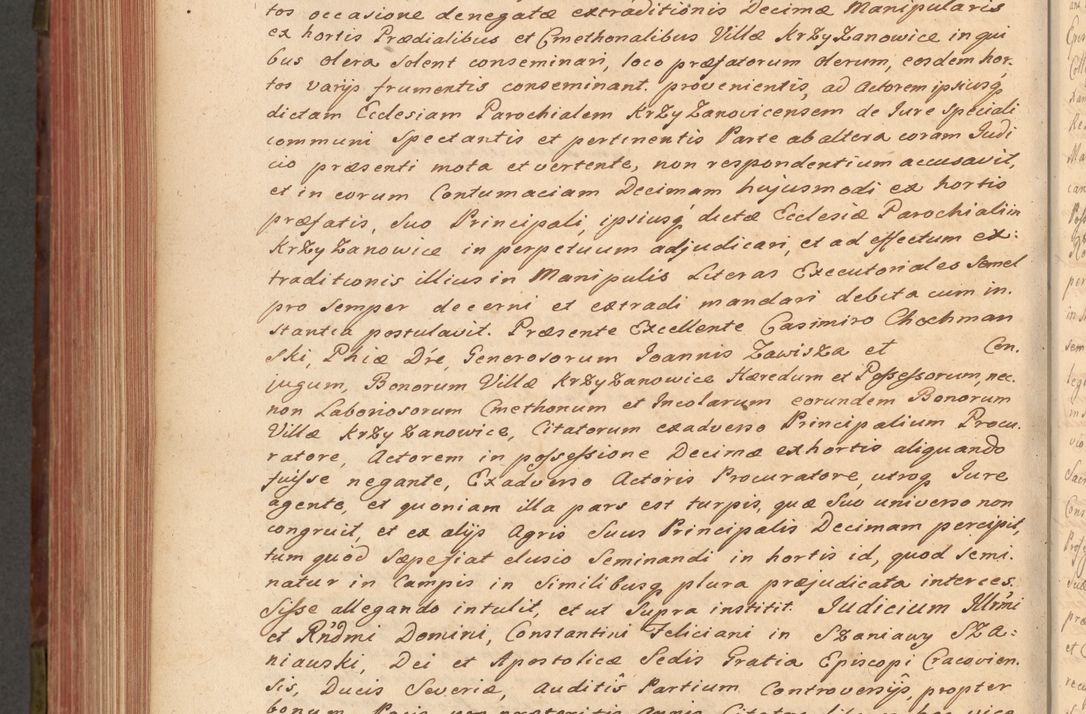 tos occasione denegatæ extraditionis Decimæ Manipularis
ex hortis Prædialibus et Cmethonalibus Villæ KrzyZanowice in qui
bus olera solent conseminari, loco præfatorum olerum, eosdem hor,
tos varijs frumentis conseminant. provenientis, ad Actorem ipsiusq
dictam Ecclesiam Parochialem KrzyZanovicensem de Jure speciali
communi spectantis et pertinentis Parte ab altera coram Judi
cio præsenti mota et vertente, non respondentium accusavit,
et in eorum Contumaciam Decimam hujusmodi ex hortis
præfatis, suo Principali, ipsiusq dictæ Ecclesiæ Parochiali in
KrzyZanowice in perpetuum adjudicari, et ad effectum ex:
traditionis illius in Manipulis Literas Executoriales semel
pro semper decerni et extradi mandari debita cum in.
stantia postulavit. Præsente Excellente Casimiro Chochman
ski, Phiæ Dre, Generosorum Joannis Zawisza et Con.
jugum, Bonorum Villæ KrzyZanowice Hæredum et Possessorum, nec.
non Laboriosorum Cmethonum et Incolarum eorundem Bonorum
Villæ KrzyZanowice, Citatorum exadverso Principalium Procu.
ratore, Actorem in possessione Decimæ ex hortis aliquando
fuisse negante, Exadverso Actoris Procuratore, utroq Jure
agente, et quoniam illa pars est turpis, quæ suo universo non
congruit, et ex alijs Agris suus Principalis Decimam percipit,
tum quod sæpe fiat elusio Seminandi in hortis id, quod semi.
natur in Campis in similibusq plura præjudicata interces.
sisse allegando intulit, et ut supra institit. Judicium Illrmi
et Rndmi Domini, Constantini Feliciani in Szaniawy Sza:
niawski, Dei et Apostolicæ Sedis Gratia Episcopi Cracovien.
sis, Ducis Severiæ, auditis Partium Controversijs, propter
bonum Pacis